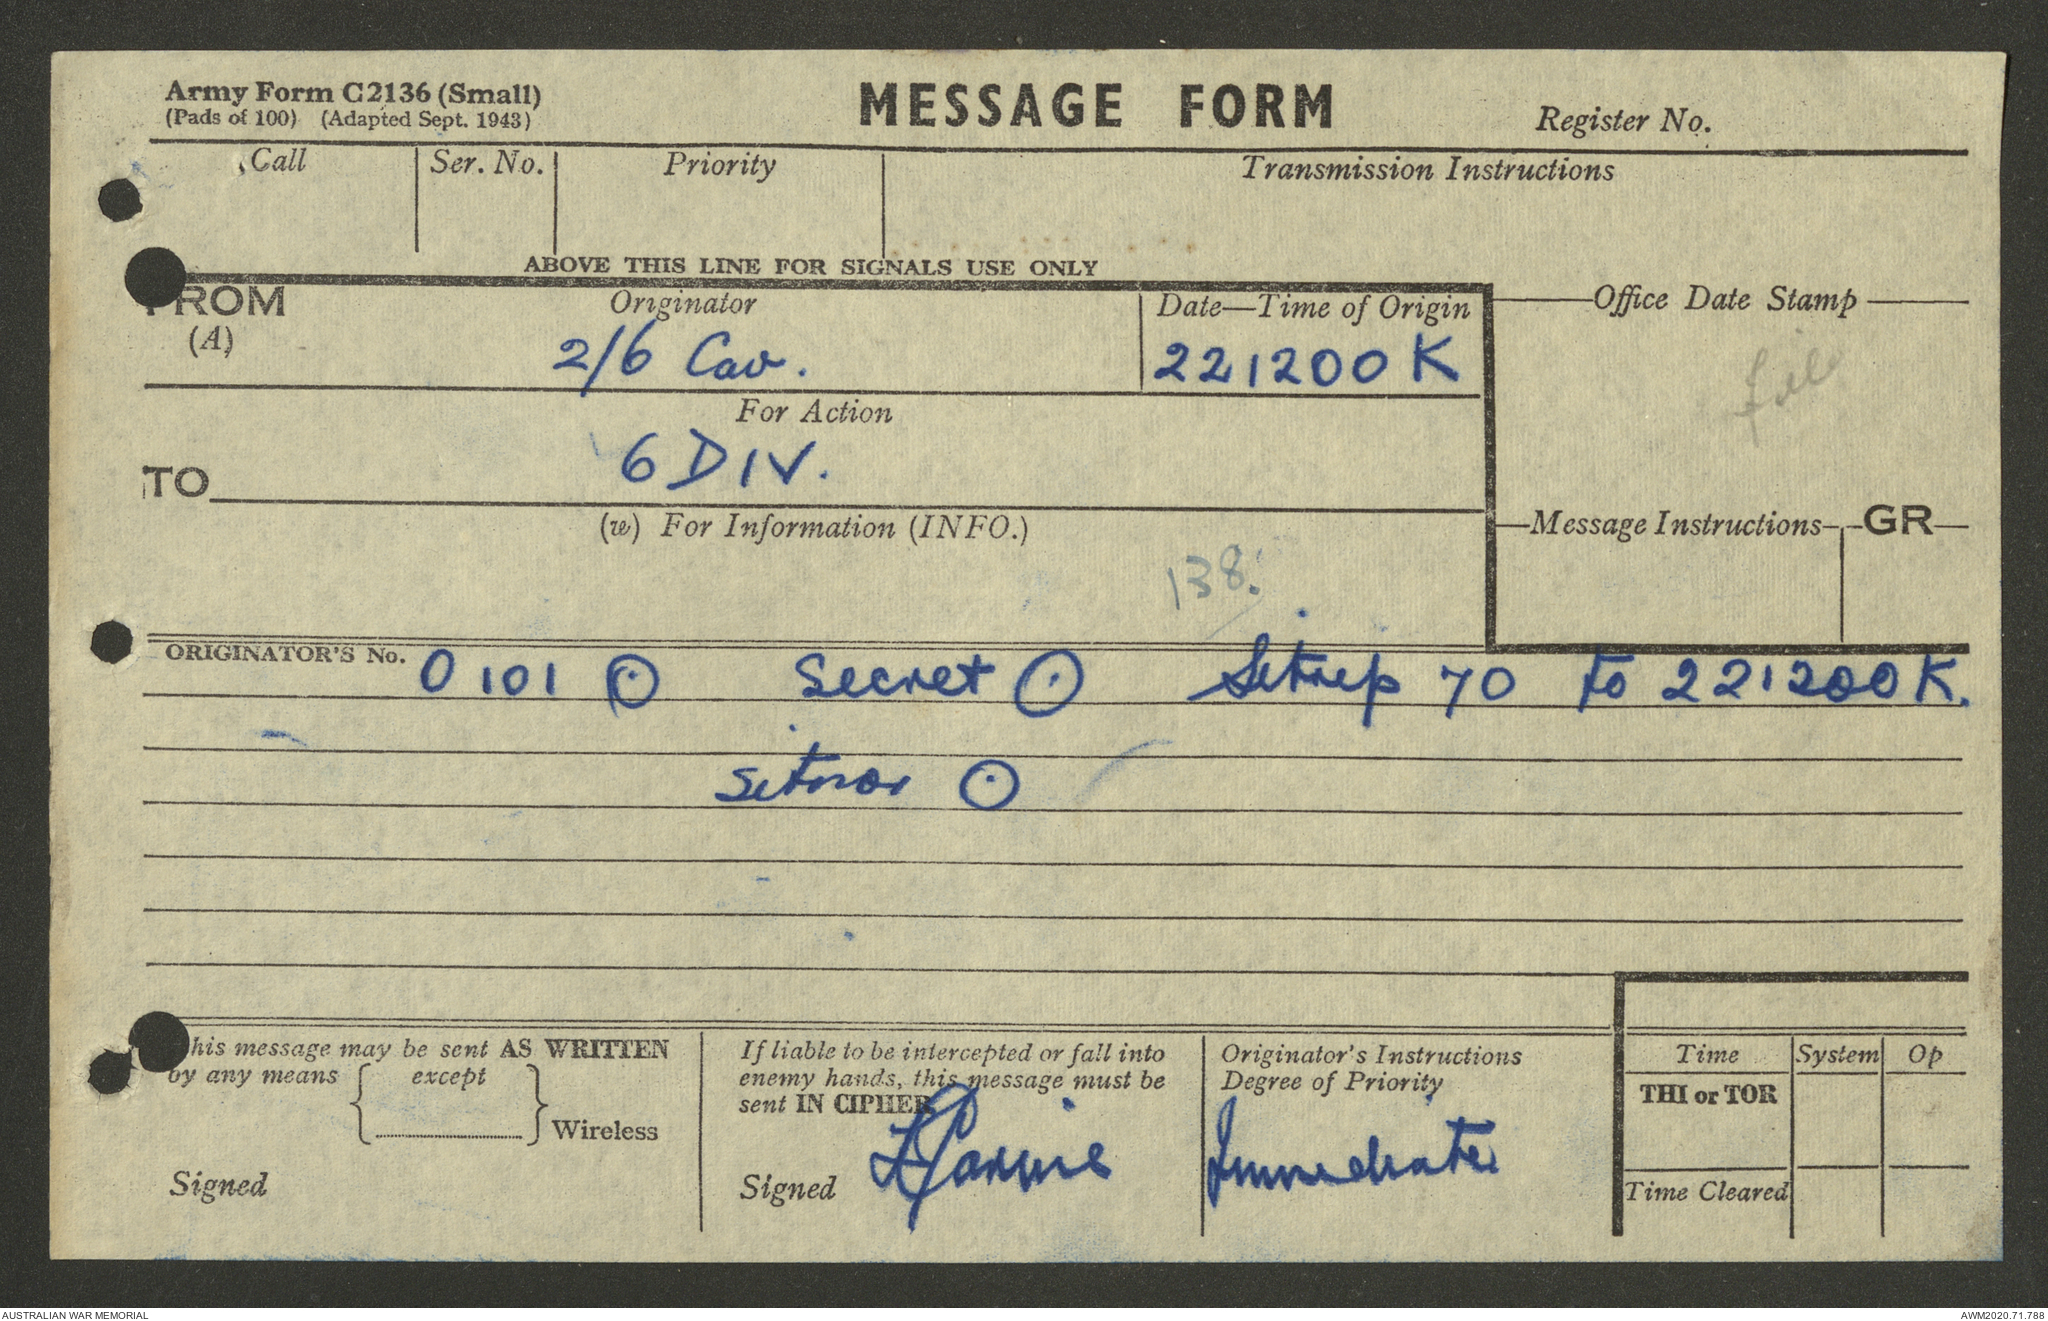 Army Form C2136 (Small)
(Pads of 100) (Adapted Sept. 1943)
MESSAGE FORM
Register No.
Call Ser. No. Priority Transmission Instructions
ABOVE THIS LINE FOR SIGNALS USE ONLY
FROM Originator Date—Time of Origin Office Date Stamp
(A) 2/6 Cav. 221200 K
File
For Action
6 DIV.
TO
(w) For Information (INFO.) Message Instructions GR
138.
ORIGINATOR'S No. 0101 ⊙ Secret ⊙ Sitrep 70 to 221200 K.
Sitnor ⊙
This message may be sent AS WRITTEN
by any means except
Wireless
Signed
If liable to be intercepted or fall into
enemy hands, this message must be
sent IN CIPHER
Signed
Originator's Instructions
Degree of Priority
Immediate
Time System Op
THI or TOR
Time Cleared
AUSTRALIAN WAR MEMORIAL AWM2020.71.788